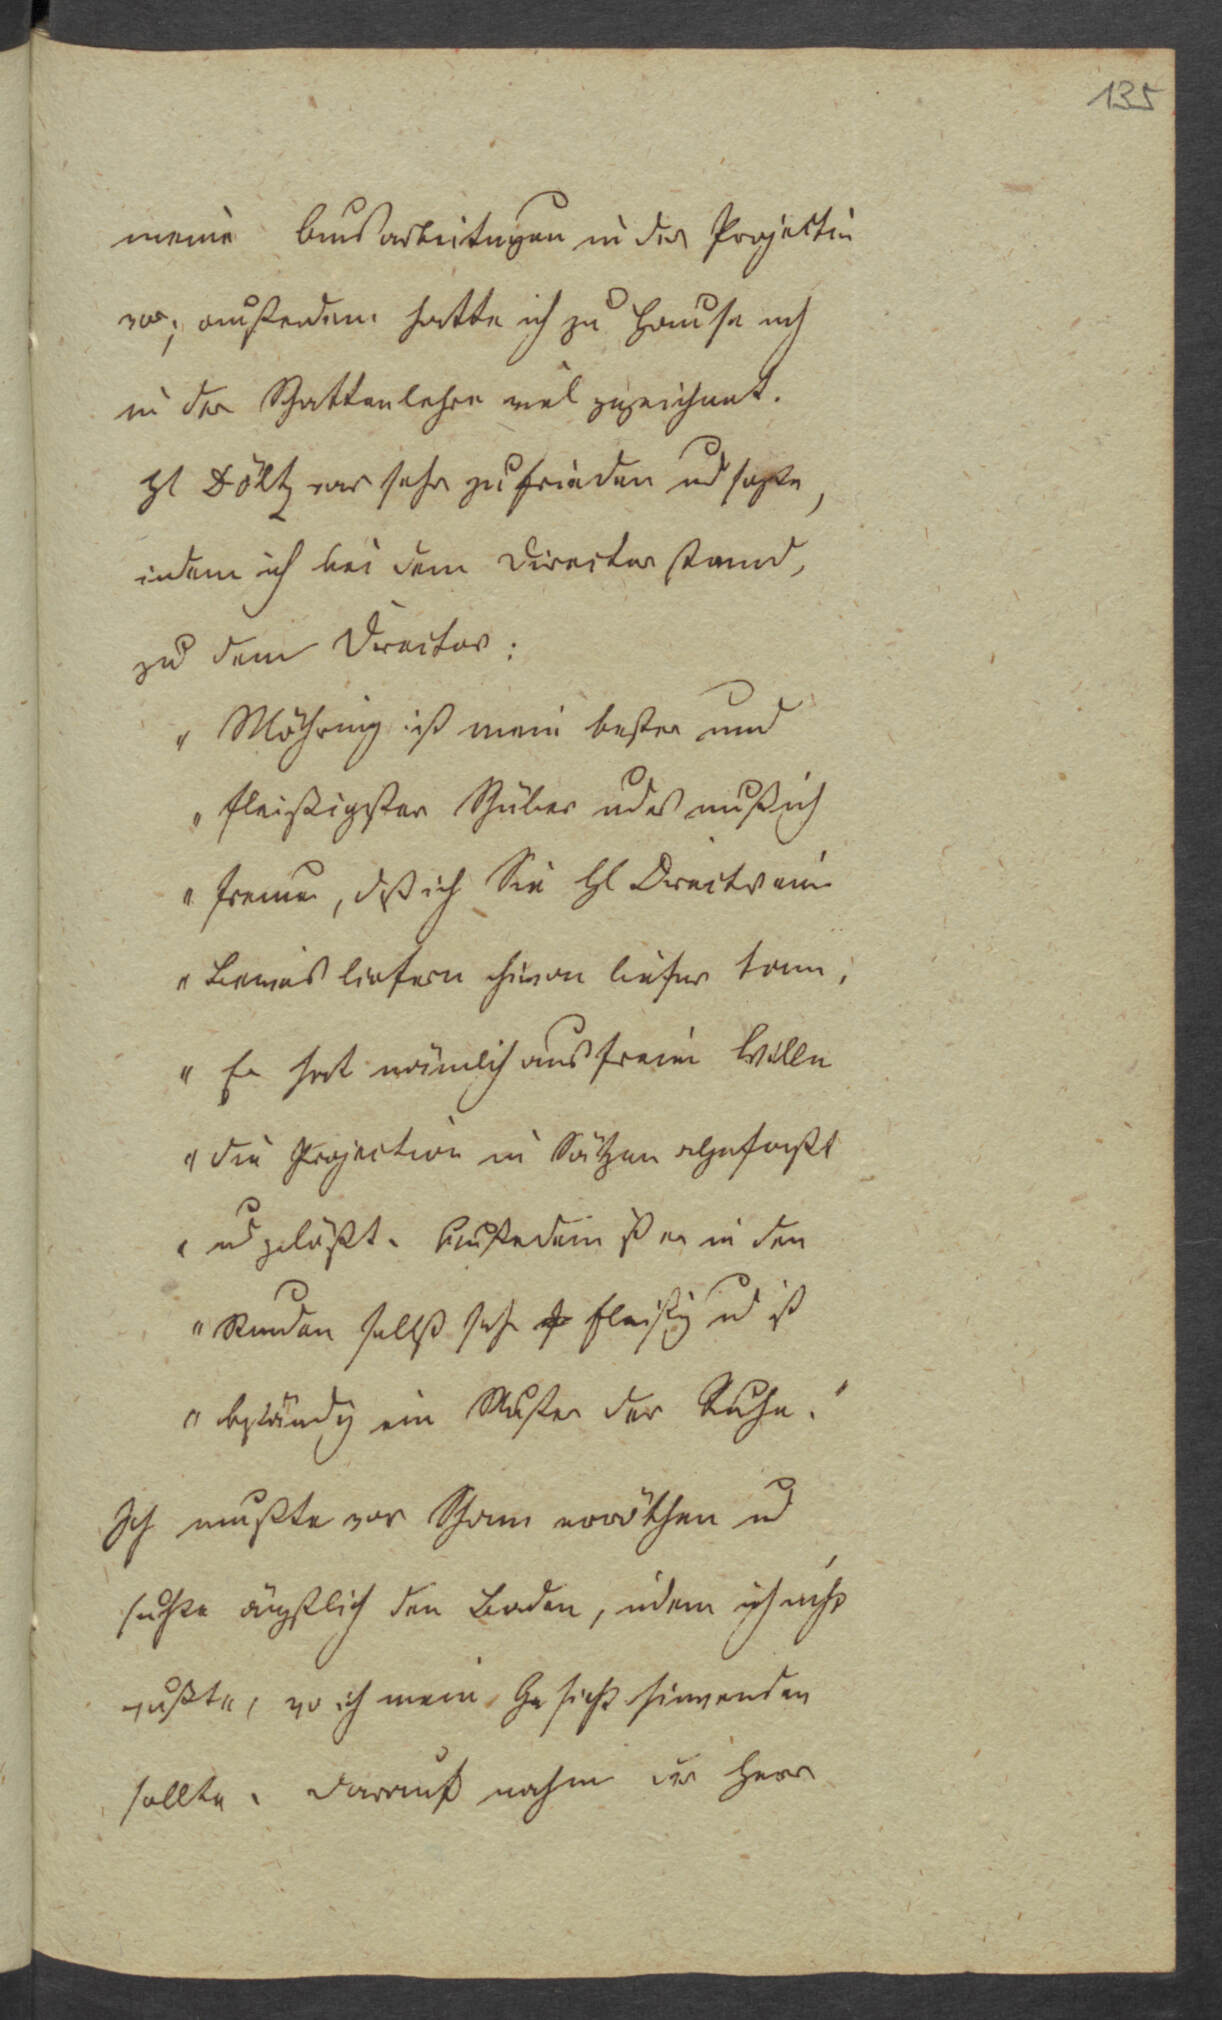 135
meine Ausarbeitungen in der Projection
vor; außerdem hatte ich zu Hause noch
in der Schattenlehre viel gezeichnet.
Hl Döltz war sehr zufrieden und sagte,
indem ich bei dem Director stand,
zu dem Director:
„ Möhring ist mein bester und
„ fleißigster Schüler und es muß mich
„ freuen, daß ich Sie Hl Director ein
„ Beweis liefern hievon liefer kann;
„ Er hat nämlich aus freien Willn
„ die Projection in Sätzen abgefaßt
„ und gelößt. Außerdem ist er in den
„ Stunden selbst sehr fleißig und ist
„ beständig ein Muster der Ruhe."
Ich mußte vor Scham erröthen und
suchte ängstlich den Boden, indem ich nicht
wußte, wo ich mein Gesicht hinwenden
sollte. Darauf nahm der Herr